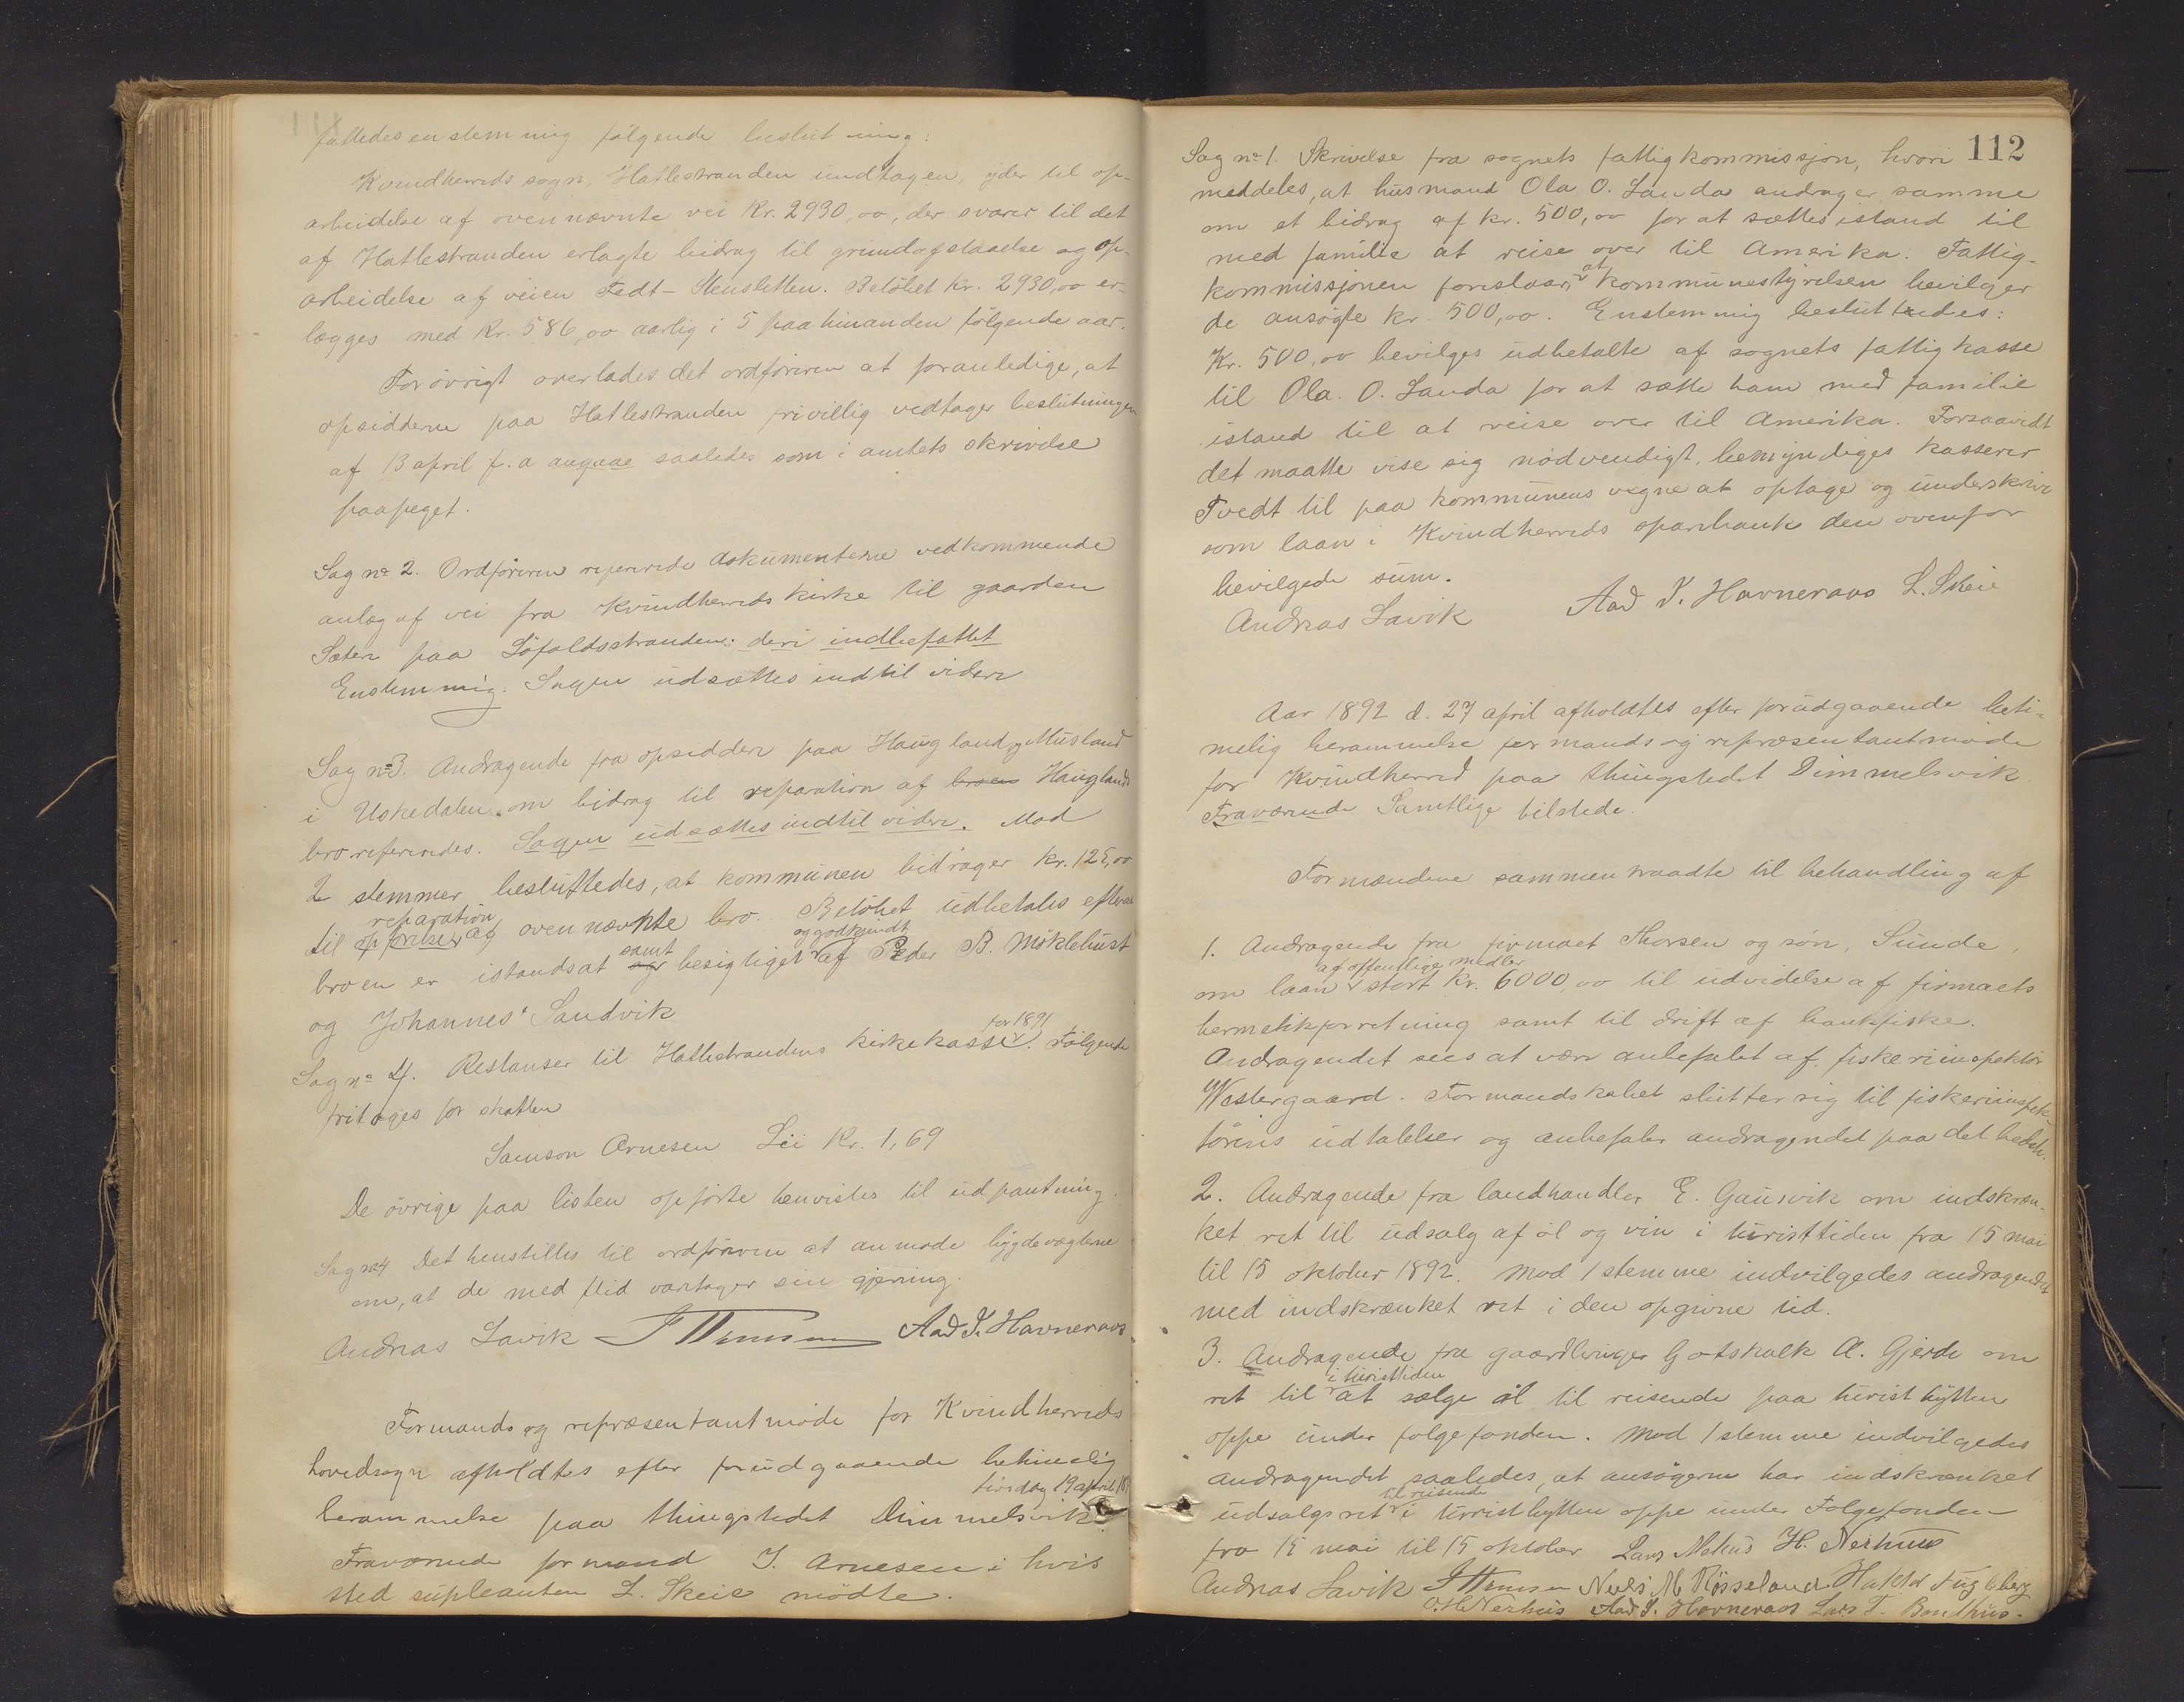 fattedes enstemmig følgende beslutning:
Kvindherreds sogn, Hatlestranden undtagen, yder til op-
arbeidelse af ovennævnte vei Kr. 2930,00, der svarer til det
af Hatlestranden erlagte bidrag til grundafstaaelse og op-
arbeidelse af veien Tedt - Stensletten. Beløbet Kr. 2930,00 er-
lægges med Kr. 586,00 aarlig i 5 paa hinanden følgende aar.
Forøvrigt overlades det ordføreren at foranledige, at
opsidderne paa Hatlestranden frivillig vedtager beslutningen
af 13 april f. a saaledes som i amtets skrivelse
paapeget.
Sag nº 2. Ordføreren refererede dokumenterne vedkommende
anlæg af vei fra Kvindherreds kirke til gaarden
Sæter paa Løfaldsstranden: deri indbefattet
Enstemmig. Sagen udsættes indtil videre
Sag nº 3. Andragende fra opsiddere paa Haugland og Musland
i Uskedalen om bidrag til reparation af broen Hauglands
bro refereredes. Sagen udsættes indtil videre. Mod
2 stemmer besluttedes, at kommunen bidrager kr. 125,00
til opførelse reparation af ovennævnte bro. Beløbet udbetales efterat
broen er istandsat og samt besigtiget og godkjendt af Peder B. Møklebust
og Johannes Sandvik
Sag nº 4. Restanser til Hatlestrandens kirkekasse for 1891. Følgende
fritages for skatten
Samson Arnesen Lii Kr. 1,69
De øvrige paa listen opførte henvistes til udpantning.
Sag nº 4 Det henstilles til ordføreren at anmode bygdevægterne
om, at de med flid varetager sin gjerning.
Andreas Lavik Aad J. Havneraas
Formands og repræsentantmøde for Kvindherreds
hovedsogn afholdtes efter forudgaaende betimelig
berammelse paa thingstedet Dimmelsvik tirsdag 19 april
Fraværende formand J. Arnesen i hvis
sted supleanten L. Skeie mødte.
112
Sag nº 1. Skrivelse fra sognets fattigkommissjon, hvori
meddeles, at husmand Ola O. Landa andrager samme
om et bidrag af kr. 500,00 for at sættes istand til
med familie at reise over til Amerika. Fattig-
kommissjonen foreslaar, at kommunestyrelsen bevilger
de ansøgte kr. 500,00. Enstemmig besluttedes:
Kr. 500,00 bevilges udbetalte af sognets fattigkasse
til Ola O. Landa for at sætte ham med familie
istand til at reise over til Amerika. Forsaavidt
det maatte vise sig nødvendigt, bemyndiges kasserer
Tvedt til paa kommunens vegne at optage og underskrive
som laan i Kvindherreds sparebank den ovenfor
bevilgede sum.
Andreas Lavik Aad J. Havneraas L. Skeie
Aar 1892 d. 27 april afholdtes efter forudgaaende beti-
melig berammelse formands og repræsentantmøde
for Kvindherred paa thingstedet Dimmelsvik.
Fraværende Samtlige tilstede.
Formændene sammentraadte til behandling af
1. Andragende fra firmaet Thorsen og søn, Sunde,
om laan af offentlige midler stort Kr. 6000,00 til udvidelse af firmaets
hermetikforretning samt til drift af bankfiske.
Andragendet sees at være anbefalet af fiskeriinspektør
Westergaard. Formandskabet slutter sig til fiskeriinspek-
tørens udtalelser og anbefaler andragendet paa det bedste.
2. Andragende fra landhandler E. Gausvik om indskræn-
ket ret til udsalg af øl og vin i turisttiden fra 15 mai
til 15 oktober 1892. Mod 1 stemme indvilgedes andragendet
med indskrænket ret i den opgivne tid.
3. Andragende fra gaardbruger Gotskalk A. Gjerde om
ret til i turisttiden at sælge øl til reisende paa turisthytten
oppe under folgefonden. Mod 1 stemme indvilgedes
andragendet saaledes, at ansøgeren har indskrænket
udsalgsret til reisende i turisthytten oppe under Folgefonden
fra 15 mai til 15 oktober Lars Mehus H. Nerhus
Andreas Lavik Neels M Røsseland Haktor Fugleberg
O. H. Nerhus Aad J. Havneraas Lars T. Bondhus.